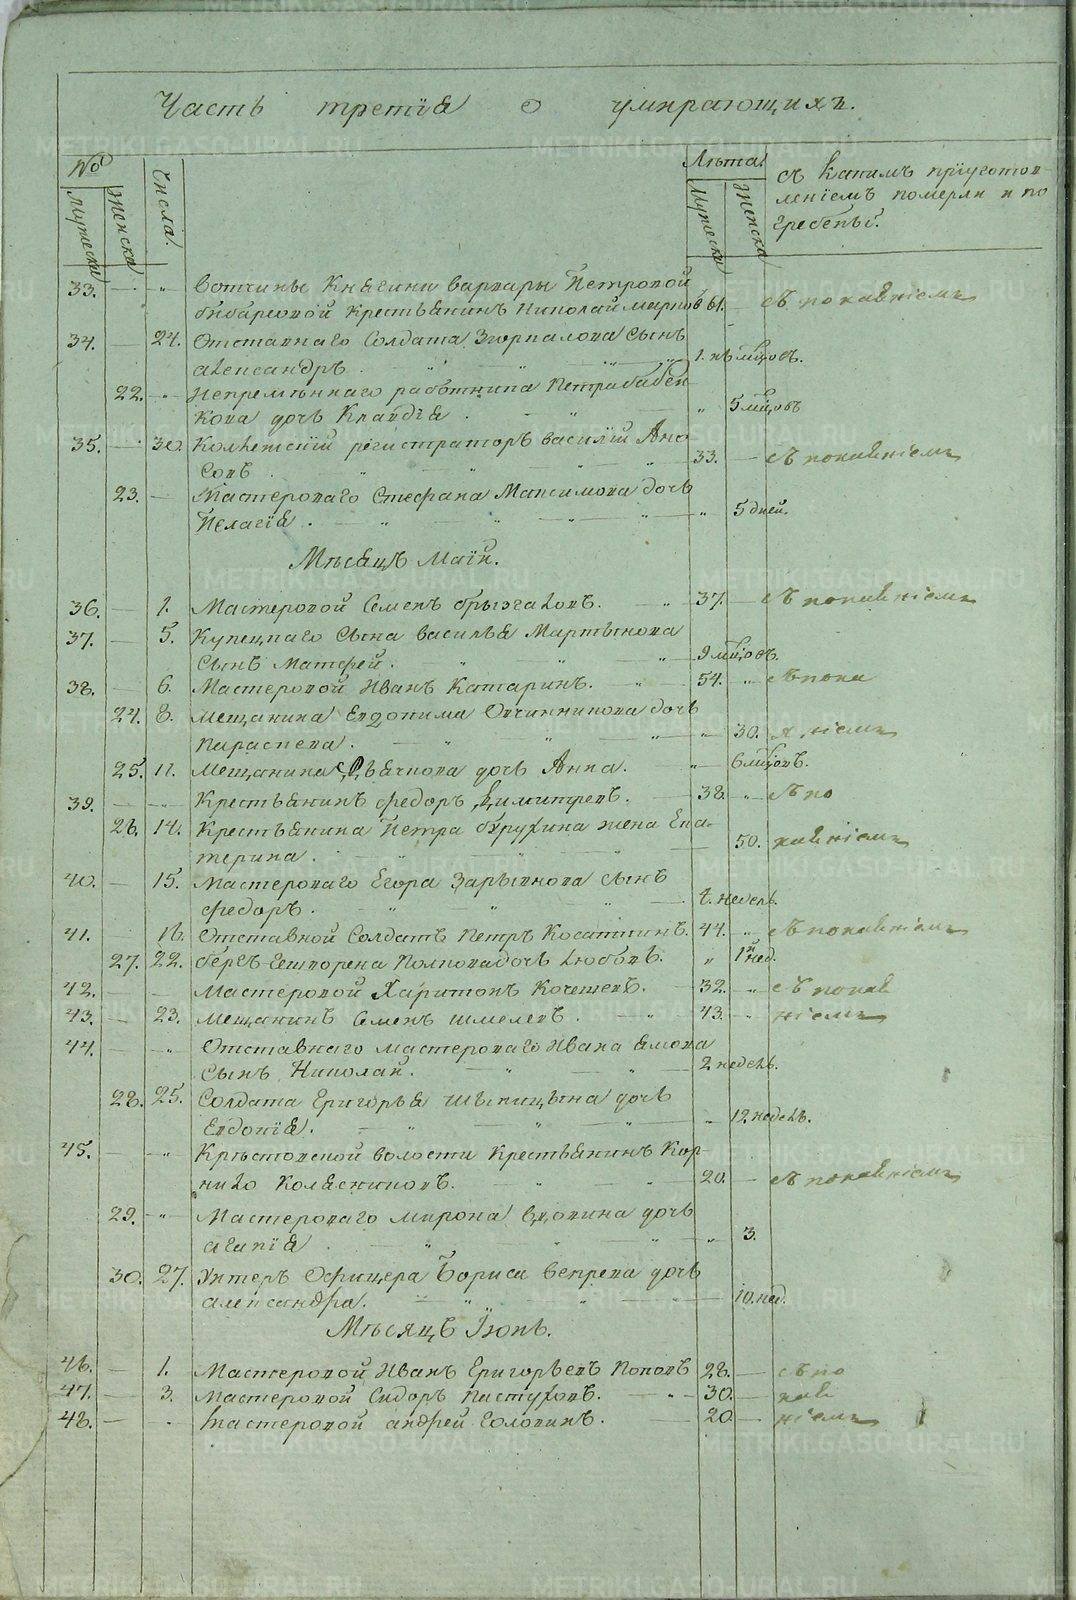 Часть третія о умирающихъ.
№
Мужеска
Женска
Числа.
Лѣта.
Мужеска
Женска
съ какимъ пріуготов-
леніемъ померли и по
гребены.
33. — „ Вотчины Княгини Варвары Петровой
крестьянинъ Николай 61. — съ покаяніемъ
34. — 24. Отставнаго Солдата сынъ
александръ. „ „ „ 1. мцовъ.
22. „ Непремѣннаго работника Петра Бабен
кова дочь Клавдія. „ „ 5 мцовъ
35. — 30. Коллежскій регистраторъ василій Ано
совъ. „ „ „ „ 33. — съ покаяніемъ
23. — Мастероваго Стефана Максимова дочь
Пелагія. „ „ „ „ „ 5 дней.
Мѣсяцъ Маій.
36. — 1. Мастеровой Семенъ Брызгаловъ. „ 37. — съ покаяніемъ
37. — 5. Купецкаго сына василья Мартынова
сынъ матфей. „ „ „ 9 мцовъ.
38. — 6. Мастеровой Иванъ Катаринъ. „ 54. „ съ пока
24. 8. Мещанина Евдокима Овчинникова дочь
параскева. „ „ „ „ 30. яніемъ
25. 11. Мещанина дочь Анна. „ 6 мцовъ.
39. — „ Крестьянинъ федоръ Димитревъ. — 38. „ съ по
26. 14. Крестьянина Петра жена Ека-
терина. „ „ „ 50. каяніемъ
40. — 15. Мастероваго Егора Зарывнова сынъ
федоръ. „ „ „ недель.
41. 16. Отставной Солдатъ Петръ Косаткинъ. 44. „ съ покаяніемъ
27. 22. дочь Любовь. „ 1 нед.
42. — — Мастеровой Харитонъ Кочешевъ. — 32. „ съ покая
43. — 23. мещанинъ Семенъ шмелевъ. „ 43. „ ніемъ
44. — „ Отставнаго мастероваго Ивана
сынъ Николай. „ „ 2 недель.
28. 25. Солдата Григорья Шыпицына дочь
Евдокія. „ „ „ „ 12 недель.
45. — „ Крестовской волости крестьянинъ Кор-
нило Колесниковъ. „ „ 20. — съ покаяніемъ
29. „ Мастероваго мирона Вдовина дочь
агапія. „ „ „ „ 3.
30. 27. Унтеръ Офицера Бориса Вепрева дочь
александра. „ „ „ 10. нед.
Мѣсяцъ Іюнь.
46. — 1. Мастеровой Иванъ Григорьевъ Поповъ 28. — съ по
47. — 3. мастеровой Сидоръ Пастуховъ. „ 30. — кая
48. — . Мастеровой андрей Головинъ. 20. — ніемъ
METRIKI.GASO-URAL.RU